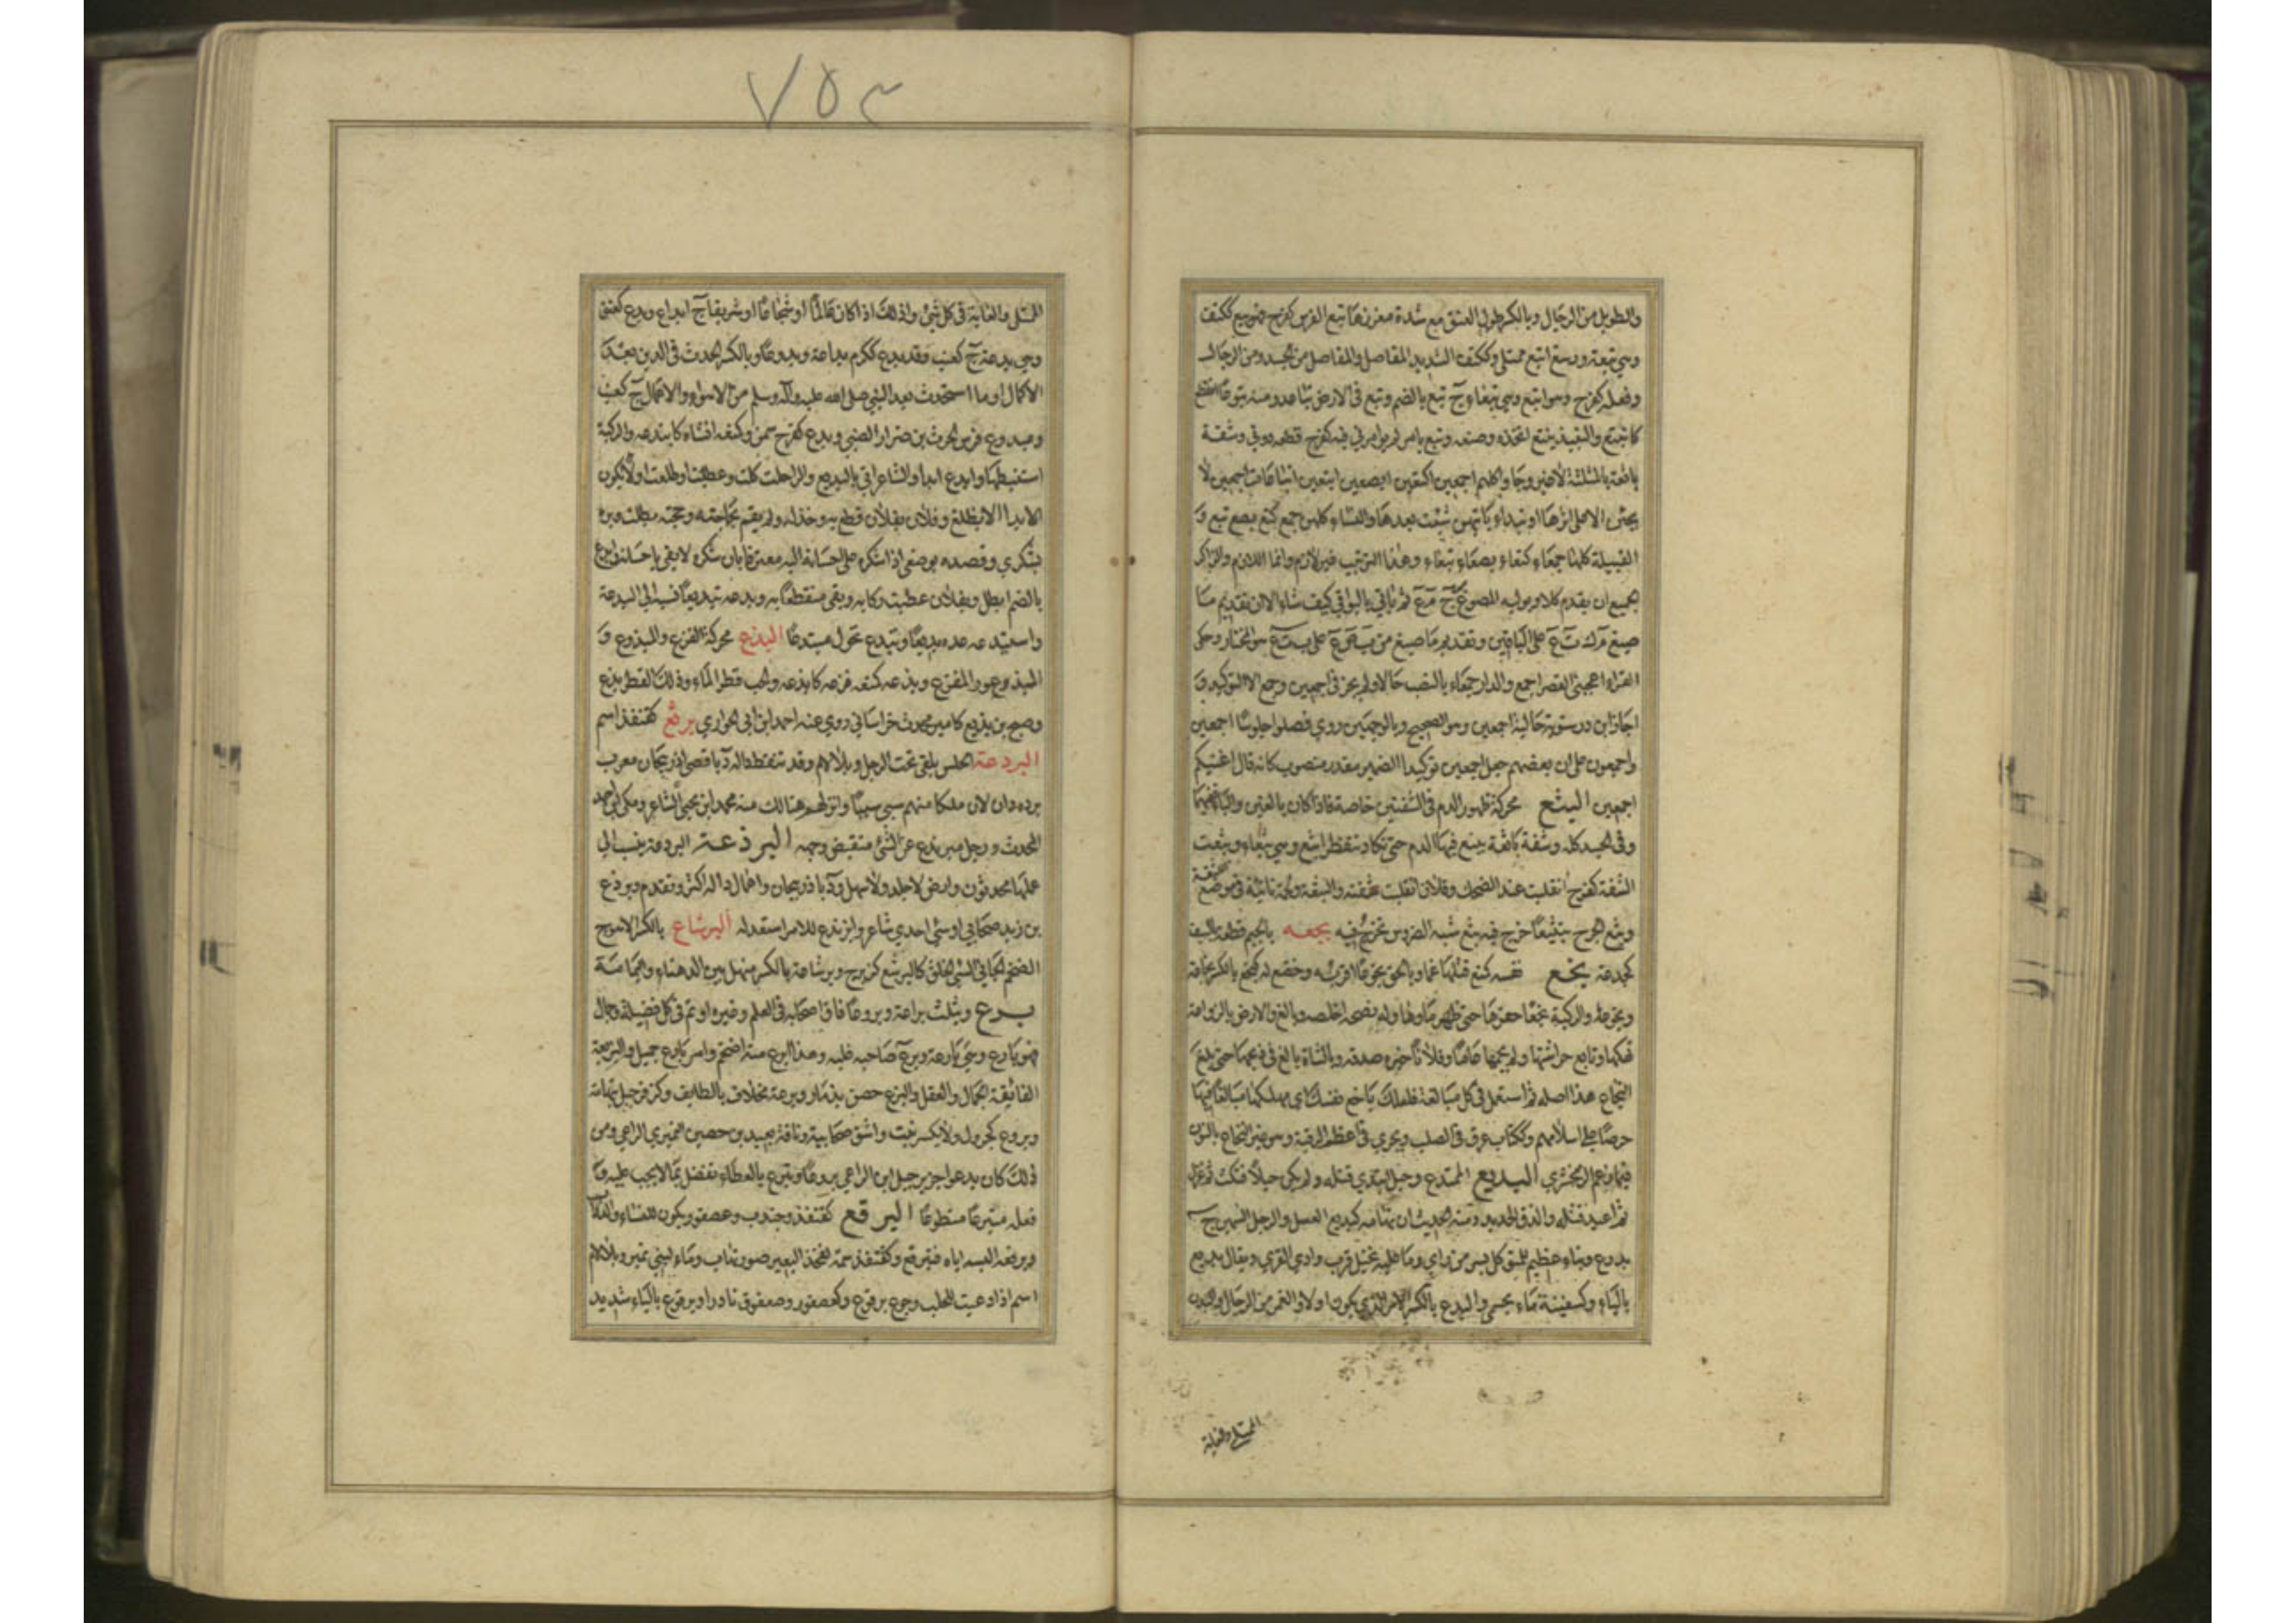 والطويل من الرجال وبالكسر طول العنق مع شدة مغرزها تبع الفرس كفرح فهو بتع ككتف
وهي بتعة ورسغ ابتع ممتلئ وككتف الشديد المفاصل والمفاصل من الجسد ومن الرجال
وفعله كفرح وهو ابتع وهي بتعاء ج بتع بالضم وبتع في الارض تباعد ومنه بتوعا انقطع
كانبتع والنبيذ يبتع اتخذه وصنعه وبتع بامر لم يوامرني فيه كفرح قطعه دوني وشفة
باثعة بالمثلثة لا غير وجاوا كلهم اجمعين اكتعين ابصعين ابتعين اتباعات لاجمعين لا
يجئن الا على اثرها او تبداء بايتهن شئت بعدها والنساء كلهن جمع كتع بصع بتع و
القبيلة كلها جمعاء كتعاء بصعاء بتعاء وهذا الترتيب غير لازم وانما اللازم لذاكر
الجميع ان يقدم كلا ويوليه المصوغ من ج م ع ثم ياتي بالبواقي كيف شاء الا ان تقديم ما
صيغ من ك ت ع على الباقين وتقديم ما صيغ من ب ص ع على ب ت ع هو المختار وحكى
الفراء اعجبني القصر اجمع والدار جمعاء بالنصب حالا ولم يجز في اجمعين وجمع الا التوكيد و
اجاز ابن درستويه حالية اجمعين وهو الصحيح وبالوجهين روي فصلوا جلوسا اجمعين
واجمعون على ان بعضهم جعل اجمعين توكيدا لضمير مقدر منصوب كانه قال اعنيكم
اجمعين البثع محركة ظهور الدم في الشفتين خاصة فاذا كان بالغين والياء ففيهما
وفي الجسد كله وشفة باثعة يبثع فيها الدم حتى تكاد تنفطر ابثع وهي بثعاء وبثعت
الشفة كفرح انقلبت عند الضحك وفلان انقلبت شفته والبثعة لحمة ناتئة في موضع
وبثع الجرح تبثيعا خرج فيه بثع شبه الضروس تخرج فيه بجعه بالجيم قطعه بالسيف
كجدعه بخع نفسه كمنع قتلها غما وبالحق بخوعا اقر به وخضع له كبخع بالكسر بخاعة
وبخوعا والركية بخعا حفرها حتى ظهر ماوها وله نصحه اخلصه وبالغ والارض بالزراعة
نهكها وتابع حراثتها ولم يجمها عاما وفلانا خبره صدقه وبالشاة بالغ في ذبحها حتى بلغ
البخاع هذا اصله ثم استعمل في كل مبالغة فلعلك باخع نفسك اي مهلكها مبالغا فيها
حرصا على اسلامهم وككتاب عرق في الصلب ويجري في عظم الرقبة وهو غير النخاع بالنون
فيما زعم الزمخشري البديع المبتدع وحبل ابتدي فتله ولم يكن حبلا فنكث ثم غزل
ثم اعيد فتله والزق الجديد ومنه الحديث ان تهامة كبديع العسل والرجل السمين ج
بدع وبناء عظيم للمتوكل بسر من راي وماء عليه نخيل قرب وادي القرى ويقال يديع
بالياء وكسفينة ماء بحسمى والبدع بالكسر الامر الذي يكون اولا والغمر من الرجال والبدن
الممتلئ والغاية
٧٥٣
الممتلئ والغاية في كل شيء وذلك اذا كان عالما او شجاعا او شريفا ج ابداع وبدع كعنق
وهي بدعة ج كعنب وقد بدع ككرم بداعة وبدوعا وبالكسر الحدث في الدين بعد
الاكمال او ما استحدث بعد النبي صلى الله عليه وآله وسلم من الاهواء والاعمال ج كعنب
ومبدوع فرس الحرث بن ضرار الضبي وبدع كفرح سمن وكمنعه انشاه كابتدعه والركية
استنبطها وابدع ابداء والشاعر اتى بالبديع والراحلة كلت وعطبت او ظلعت او لا يكون
الابداع الا بظلع وفلان بفلان قطع به وخذله ولم يقم بحاجته وحجته بطلت وبره
بشكري وقصده بوصفي اذا شكره على احسانه اليه معترفا بان شكره لا يفي باحسانه وابدع
بالضم ابطل وبفلان عطبت ركابه وبقي منقطعا به وبدعه تبديعا نسبه الى البدعة
واستبدعه عده بديعا وتبدع تحول مبتدعا البذع محركة الفزع والمبذوع و
المبذوعور المفزع وبذعه كمنعه فزعه كابذعه والحب قطر الماء وذلك القطر بذع
وصبح بن بذيع كامير محدث خراساني روى عنه احمد ابن ابي الحواري برثع كقنفذ اسم
البردعة الحلس يلقى تحت الرحل وبلا لام وقد تنقط داله د باقصى اذربيجان معرب
برده دان لان ملكا منهم سبى سبيا وانزلهم هنالك منه محمد ابن يحيى الشاعر ومكي بن احمد
المحدث ورجل مبرندع عن الشيء منقبض وجهه البرذعة البردعة ينسب الى
عملها محدثون وارض لا جلد ولا سهل ود باذربيجان واهمال داله اكثر وتقدم وبرذع
بن زيد صحابي اوسي احدي شاعر وابرنذع للامر استعد له البرشاع بالكسر الاهوج
الضخم الجافي السيئ الخلق كالبرشع كزبرج وبرشاعة بالكسر منهل بين الدهناء واليمامة
برع ويثلث براعة وبروعا فاق اصحابه في العلم وغيره او تم في كل فضيلة وجمال
فهو بارع وهي بارعة وبرع صاحبه غلبه وهذا ابرع منه اضخم وامر بارع جميل والبريعة
الفائقة الجمال والعقل والبرع حصن بذمار وبرعة مخلاف بالطايف وكزفر جبل بتهامة
وبروع كجرول ولا يكسر بنت واشق صحابية وناقة لعبيد بن حصين النميري الراعي ومن
ذلك كان يدعو جرير جندل ابن الراعي بروعا وتبرع بالعطاء تفضل بما لا يجب عليه و
فعله متبرعا متطوعا البرقع كقنفذ وجندب وعصفور يكون للنساء والدواب
وبرقعه البسه اياه فتبرقع وكقنفذ سمة لفخذ البعير صورتها وماء لبني نمير وبلا لام
اسم اذا دعيت للحلب وجوع برقوع وكعصفور وصعفوق نادرا ويرقوع بالياء شديد